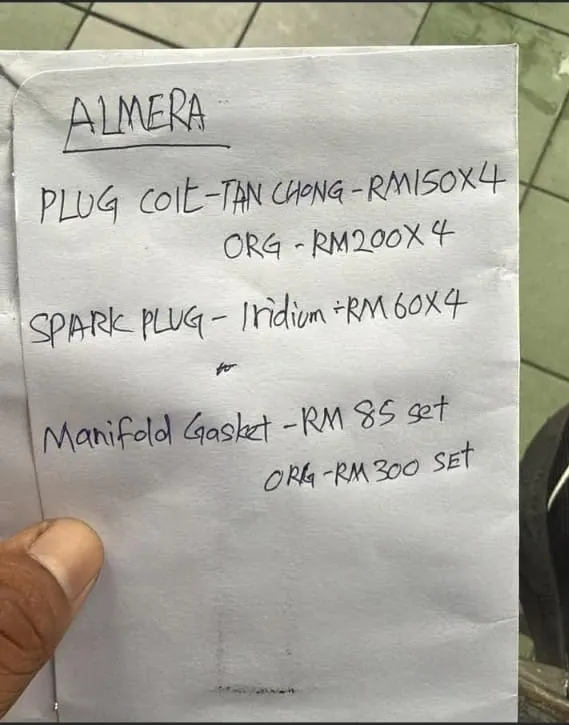 ALMERA
PLUG COIL-TAN CHONG-RM150X4
ORG - RM200X4
SPARK PLUG - Iridium -RM60X4
Manifold Gasket -RM 85 set
ORG-RM300 SET